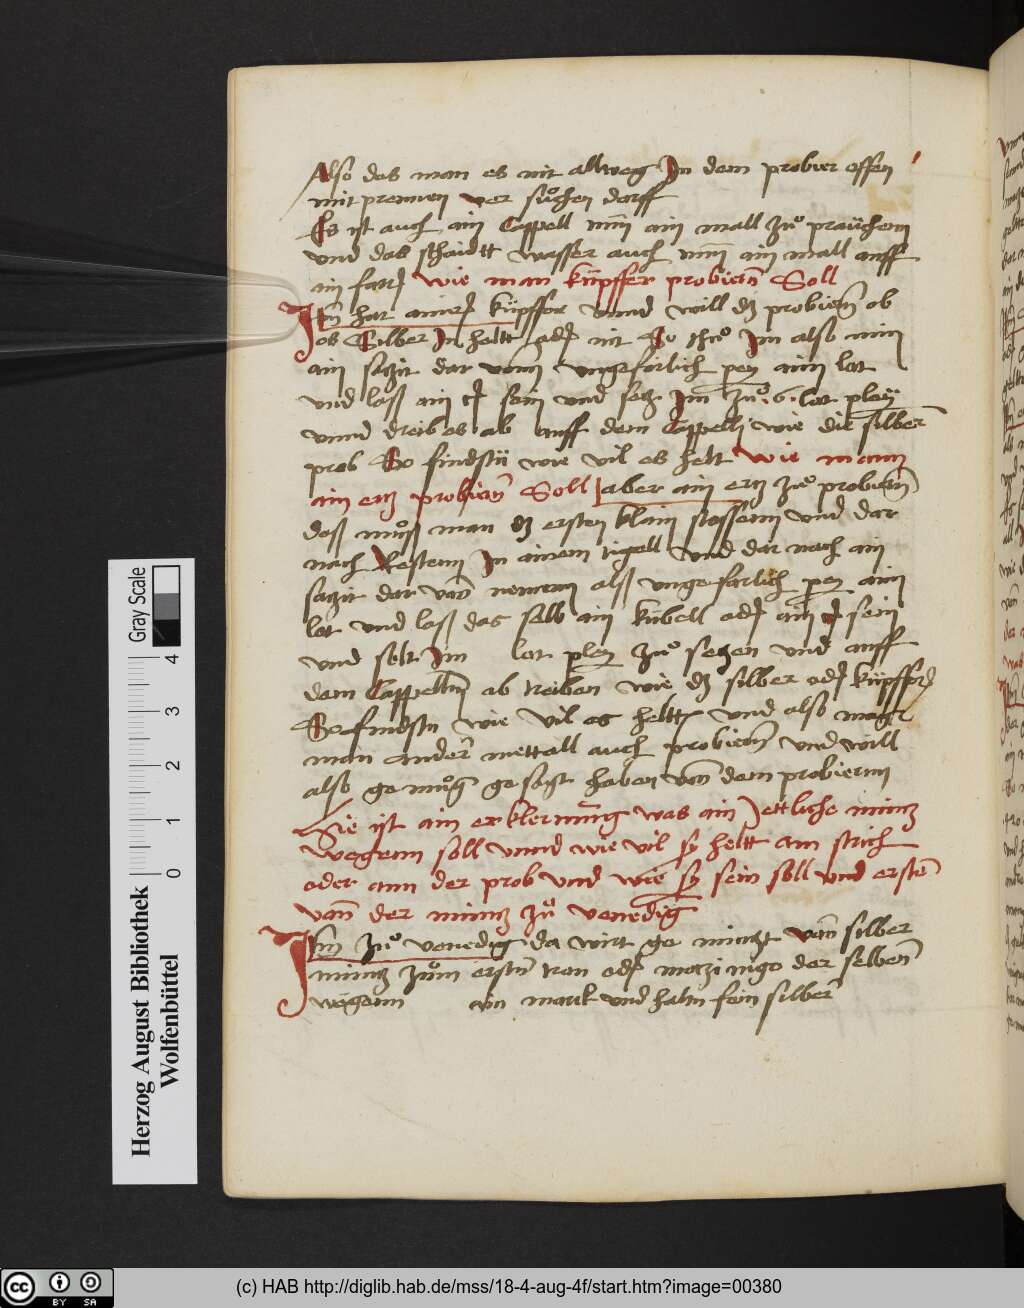 Also das man es nit allweg In dem probier offen
mit prennen ver sůchen darff
Es ist auch ain Cappell nun ain mall zů praüchenn
und das schaidtt wasser auch nun ain mall auff
ain fart wie man küpffer probiern Soll
Itm hat ainer küpffer unnd will dz probiern ob
ob Silber In heltt oder nit So thů Im also nim
ain satzit dar vonn ungeforlich pey aim lot
und laß ain sein und setz Im zů .6. lot pleÿ
unnd treib es ab auff dem Cappelln wie die silber
prob So findstü wie vil es helt wie mann
ain ertz probiern Soll aber ain ertz zů probiern
daß můß man dz ersten klain stossenn und dar
nach Restenn In ainem tigell und dar nach ain
satzit dar van nemenn alß ungefarlich pey aim
lot und laß das selb ain kübell oder ain sein
und solt Im lot pley zů setzen und auff
dem Cappelln ab treiben wie dz silber oder küpffer
So findstu wie vil es heltt und also magst
man ander mettall auch probiern und will
also ge můg gesagt haben von dem probiernn
Hie ist ain erklerung was ain Jettliche müntz
wegenn soll unnd wie vil sy heltt am strich
oder ann der prob und wie sy sein soll und ersten
van der müntz zů venedig
Itm zů venedig da wirt ge müntzt van silber
müntz zům ersten tron oder motzinigo der selben
wegenn ain marck und haltn fein silber
Herzog August Bibliothek
Wolfenbüttel
Gray Scale
0 1 2 3 4
cc BY SA
(c) HAB http://diglib.hab.de/mss/18-4-aug-4f/start.htm?image=00380